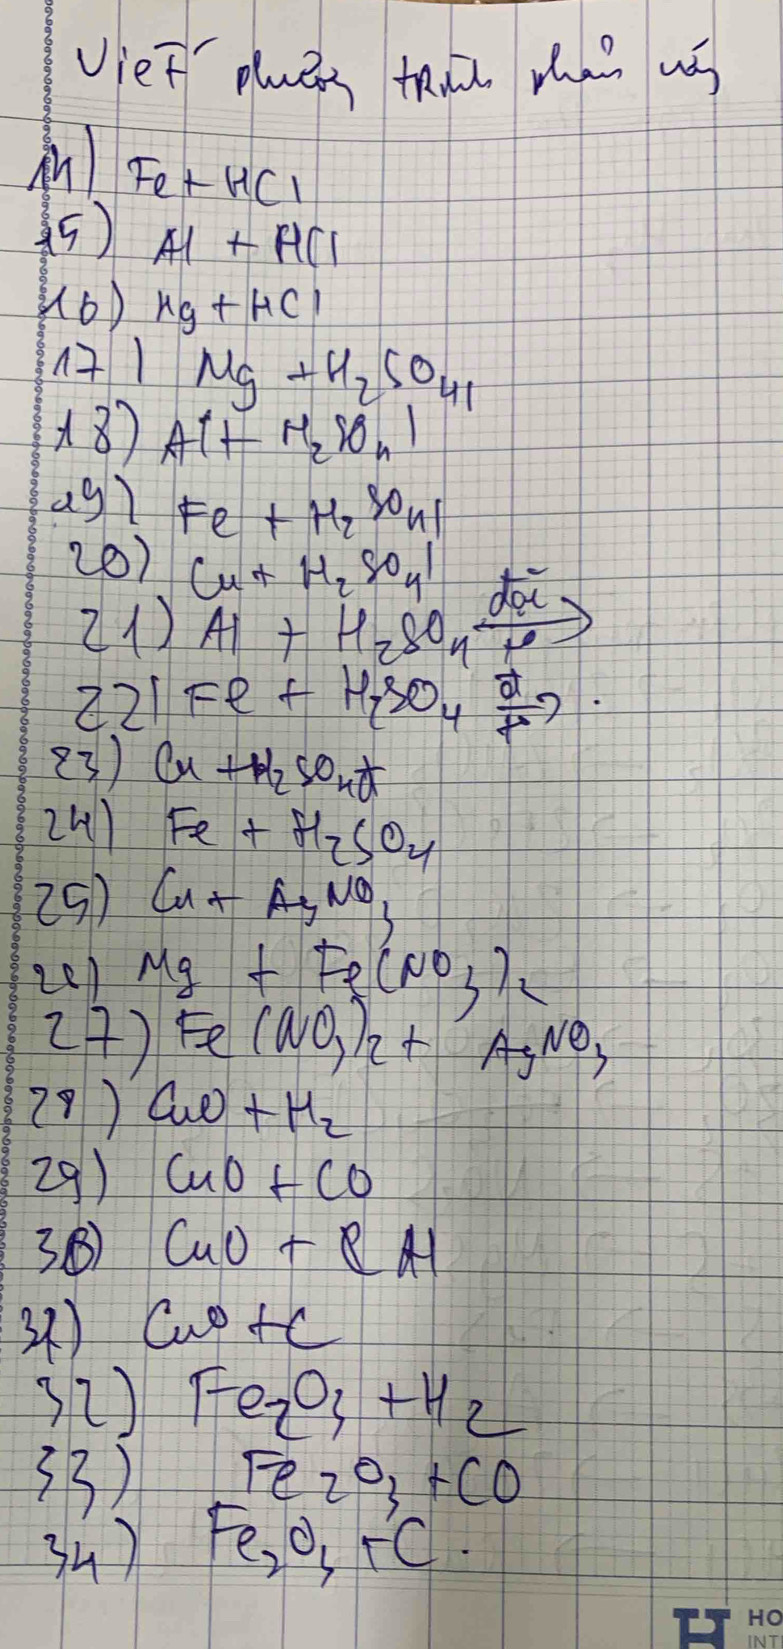 Viết phương trình phản ứng
14) Fe + HCl
15) Al + HCl
16) Mg + HCl
17) Mg + H2SO4l
18) Al + H2SO4l
19) Fe + H2SO4l
20) Cu + H2SO4l
21) Al + H2SO4 đặc t°
22) Fe + H2SO4 đ t°
23) Cu + H2SO4đ
24) Fe + H2SO4
25) Cu + AgNO3
26) Mg + Fe(NO3)2
27) Fe(NO3)2 + AgNO3
28) CuO + H2
29) CuO + CO
30) CuO + Al
31) CuO + C
32) Fe2O3 + H2
33) Fe2O3 + CO
34) Fe2O3 + C.
HO
INT